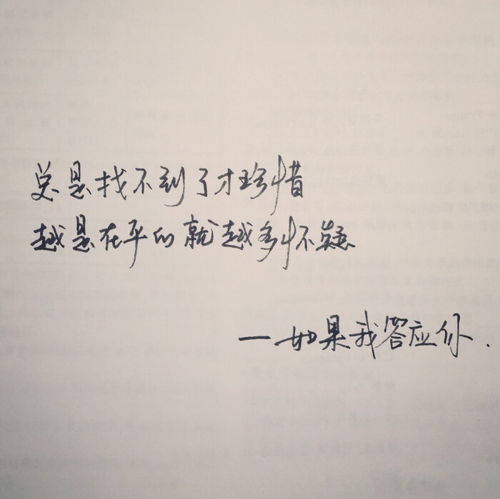 总是找不到了才珍惜
越是在乎的就越多怀疑
—如果我答应你.